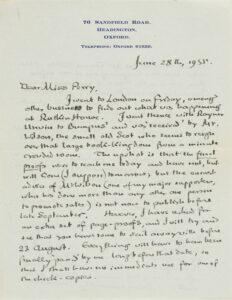 76 SANDFIELD ROAD,
HEADINGTON,
OXFORD.
TELEPHONE: OXFORD
June 28th, 195
Dear Miss Perry,
I went to London on Friday, among
other business to find out what was happening
at Ruskin House. I went there with Rayner
Unwin to and was 'received' by Mr.
Wilson, the small old who seems to reign
over that large from a minute
crowded room. The upshot is that the final
proofs to reach me today and have not, but
will come (I suppose) tomorrow; but the
advice of Wilson (one of my major supporter,
who has done more than any one person
to promote sales) is not now to publish before
late September. However, I have asked for
an extra set of page-proofs, and I will try and
see that you have some to send away with before
22 August. Everything will have to have been
finally passed by me long before that date, so
that I shall have no immediate use for one of
the check-copies.